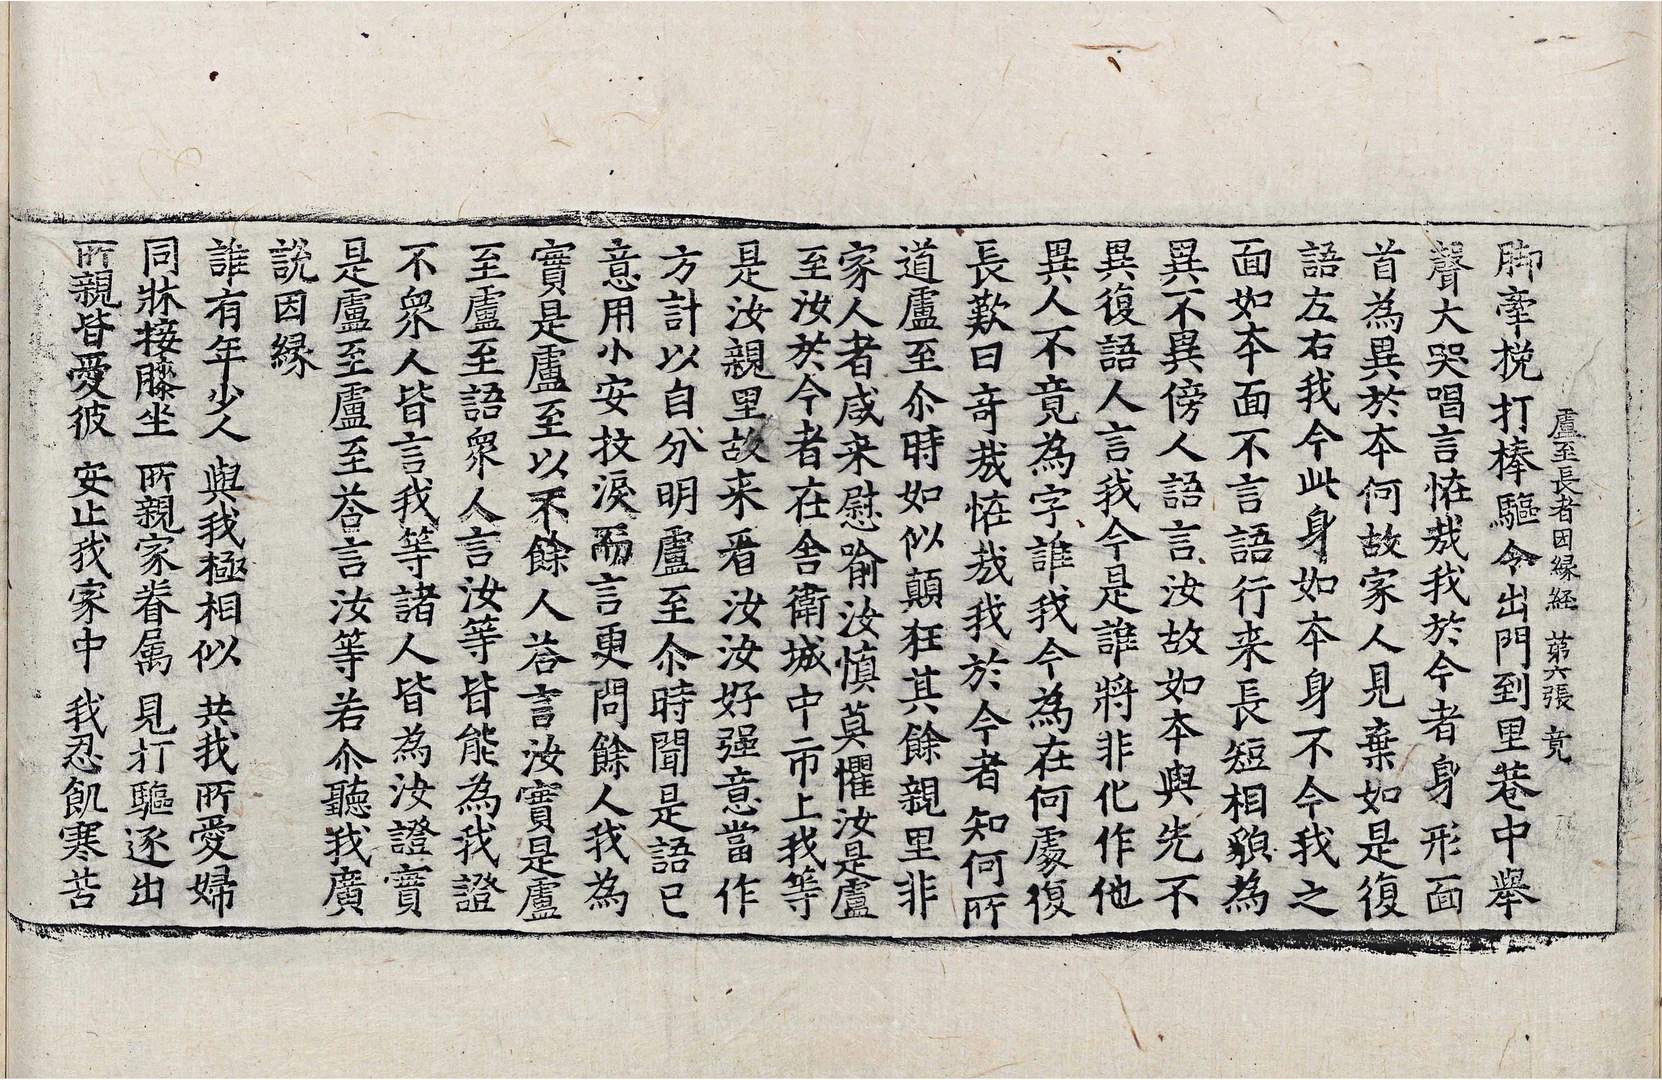 盧至長者因縁経 第六張 竟
脚牽挽打棒驅令出門到里巷中舉
聲大哭唱言怪㢤我於今者身形面
首為異於夲何故家人見棄如是復
語左右我今此身如夲身不今我之
面如夲面不言語行来長短相貌為
異不異傍人語言汝故如本與先不
異復語人言我今是誰將非化作他
異人不竟為字誰我今為在何處復
長歎曰竒㢤怪㢤我於今者知何所
道盧至尒時如似顛狂其餘親里非
家人者咸来慰喻汝慎莫懼汝是盧
至汝於今者在舎衛城中市上我等
是汝親里故来看汝汝好强意當作
方計以自分明盧至尒時聞是語已
意用小安抆淚而言更問餘人我為
實是盧至以不餘人荅言汝實是盧
至盧至語衆人言汝等皆能為我證
不衆人皆言我等諸人皆為汝證實
是盧至盧至荅言汝等若尒聽我廣
説因縁
誰有年少人 與我極相似 共我所愛婦
同牀接膝坐 所親家眷属 見打驅逐出
所親皆愛彼 安止我家中 我忍飢寒苦